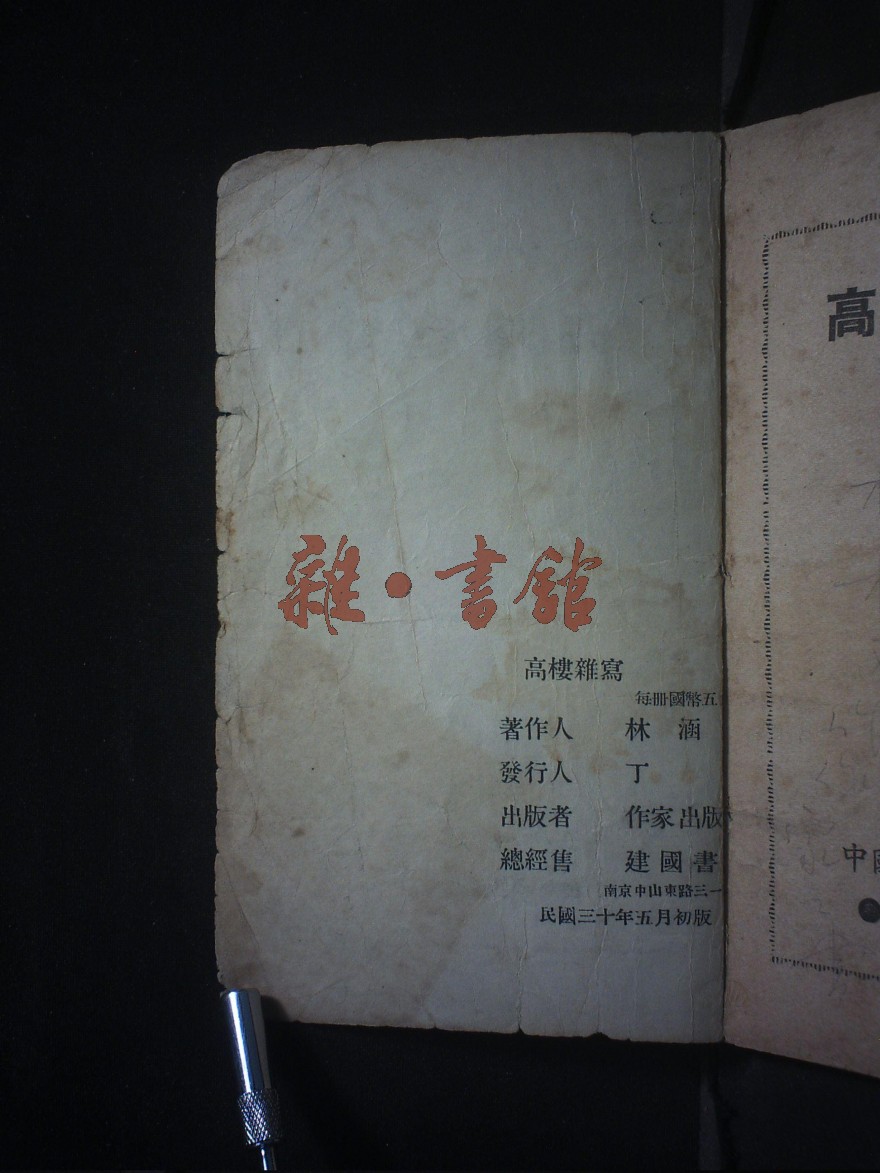 雜·書館
高樓雜寫
每冊國幣五
著作人 林涵
發行人 丁
出版者 作家出版
總經售 建國書
南京中山東路三一
民國三十年五月初版
高
中